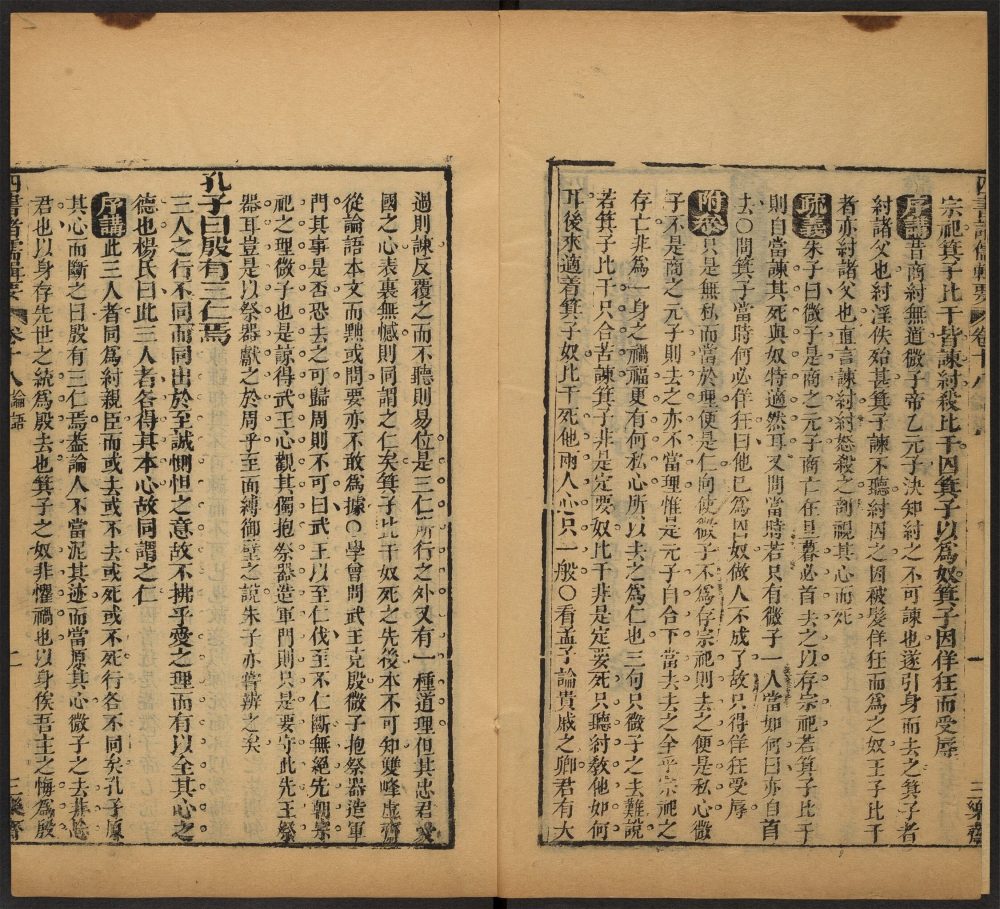 宗祀箕子比干皆諫紂殺比干囚箕子以爲奴箕子因佯狂而受辱
序講昔商紂無道微子帝乙元子決知紂之不可諫也遂引身而去之箕子者
紂諸父也紂淫佚殆甚箕子諫不聽紂囚之因被髮佯狂而爲之奴王子比干
者亦紂諸父也直言諫紂紂怒殺之剖視其心而死
疏義朱子曰微子是商之元子商亡在旦暮必首去之以存宗祀若箕子比干
則自當諫其死與奴特適然耳又問當時若只有微子一人當如何曰亦自首
去○問箕子當時何必佯狂曰他已爲囚奴做人不成了故只得佯狂受辱
附叅只是無私而當於理便是仁向使微子不爲存宗祀則去之便是私心微
子不是商之元子則去之亦不當理惟是元子自合下當去去之全乎宗祀之
存亡非爲一身之禍福更有何私心所以去之爲仁也三句只微子之去難說
若箕子比干只合苦諫箕子非是定要奴比干非是定要死只聽紂敎他如何
耳後來適着箕子奴比干死他兩人心只一般○看孟子論貴戚之卿君有大
卷十八
一
三樂齋
過則諫反覆之而不聽則易位是三仁所行之外又有一種道理但其忠君愛
國之心表裏無憾則同謂之仁矣箕子比干奴死之先後本不可知雙峰虛齋
從論語本文而黜或問要亦不敢爲據○學曾問武王克殷微子抱祭器造軍
門其事是否恐去之可歸周則不可曰武王以至仁伐至不仁斷無絕先朝宗
祀之理微子也是諒得武王心觀其獨抱祭器造軍門則只是要守此先王祭
器耳豈是以祭器獻之於周乎至面縛御璧之說朱子亦嘗辨之矣
孔子曰殷有三仁焉
三人之行不同而同出於至誠惻怛之意故不拂乎愛之理而有以全其心之
德也楊氏曰此三人者各得其本心故同謂之仁
序講此三人者同爲紂親臣而或去或不去或死或不死行各不同矣孔子原
其心而斷之曰殷有三仁焉蓋論人不當泥其迹而當原其心微子之去非忘
君也以身存先世之統爲殷去也箕子之奴非懼禍也以身俟吾主之悔爲殷
四書諸儒輯要 卷十八 論語
二
三樂齋